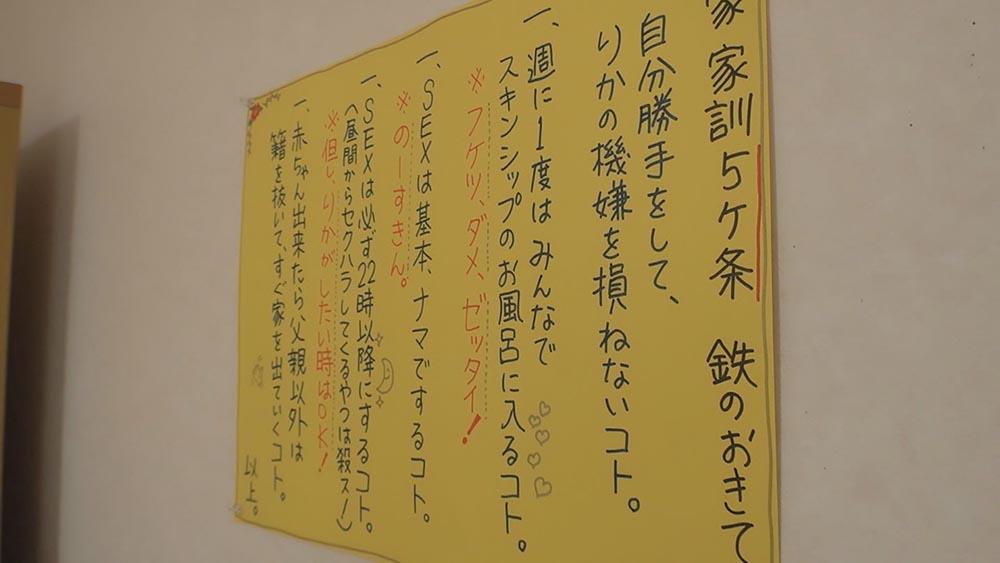 家家訓５ケ条　鉄のおきて
自分勝手をして、
りかの機嫌を損ねないコト。
一、週に１度はみんなで
スキンシップのお風呂に入るコト。
※フケツ、ダメ、ゼッタイ！
一、ＳＥＸは基本、ナマでするコト。
※のーすきん。
一、ＳＥＸは必ず22時以降にするコト。
（昼間からセクハラしてくるやつは殺ス！）
※但し、りかがしたい時はＯＫ！
一、赤ちゃん出来たら、父親以外は
籍を抜いて、すぐ家を出ていくコト。
以上。